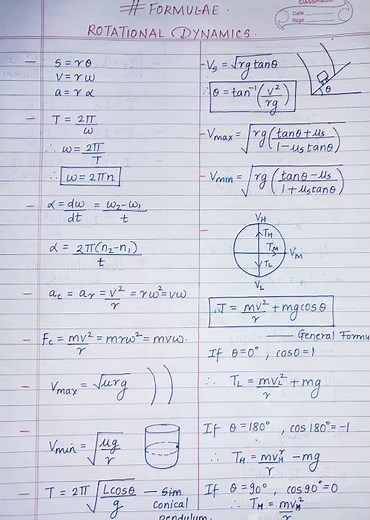 # FORMULAE.
Classmate
Date
Page
ROTATIONAL DYNAMICS.
– S = rθ
V = rω
a = rα
– T = 2π/ω
∴ ω = 2π/T
∴ ω = 2πn
– α = dω/dt = ω₂-ω₁/t
α = 2π(n₂-n₁)/t
– a_c = a_r = v²/r = rω² = vω
– F_c = mv²/r = mrω² = mvω.
– V_max = √μrg
– V_min = √μg/r
– T = 2π √Lcosθ/g — Sim
conical
pendulum.
– V_s = √rg tanθ
∴ θ = tan⁻¹(v²/rg)
θ
– V_max = √rg(tanθ+μs/1-μs tanθ)
– V_min = √rg(tanθ-μs/1+μs tanθ)
–
V_H
T_H
T_M V_M
T_L
V_L
∴ T = mv²/r + mg cosθ
— General Formu
If θ = 0°, cos0 = 1
∴ T_L = mv_L²/r + mg
If θ = 180°, cos180° = -1
∴ T_H = mv_H²/r - mg
If θ = 90°, cos90° = 0
∴ T_M = mv_M²/r